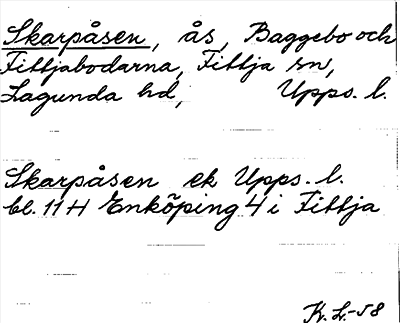 Skarpåsen, ås, Baggebo och
Fittjabodarna, Fittja sn,
Lagunda hd, Upps. l.
Skarpåsen ek Upps. l.
bl. 11 H Enköping 4 i Fittja
K. L. -58